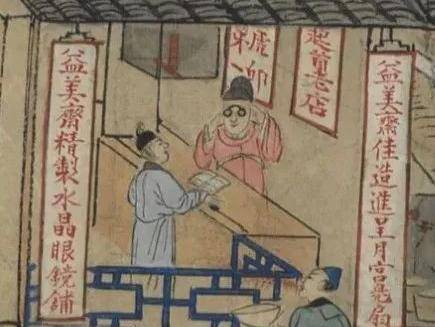 益美齋佳造進呈月宮毫扇
起首老店
益美齋精製水晶眼鏡鋪